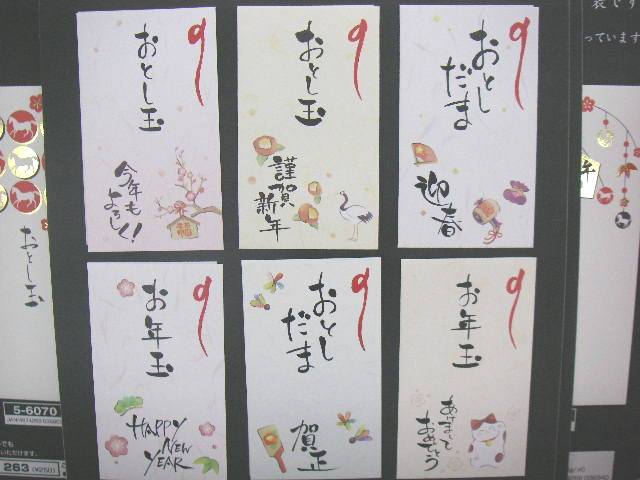 おとし玉
今年も
よろしく!
おとし玉
謹賀
新年
おとし
だま
迎春
お年玉
HAPPY
NEW
YEAR
おとし
だま
賀正
お年玉
あけまして
おめでとう
おとし玉
5-6070
263
袋です
っています